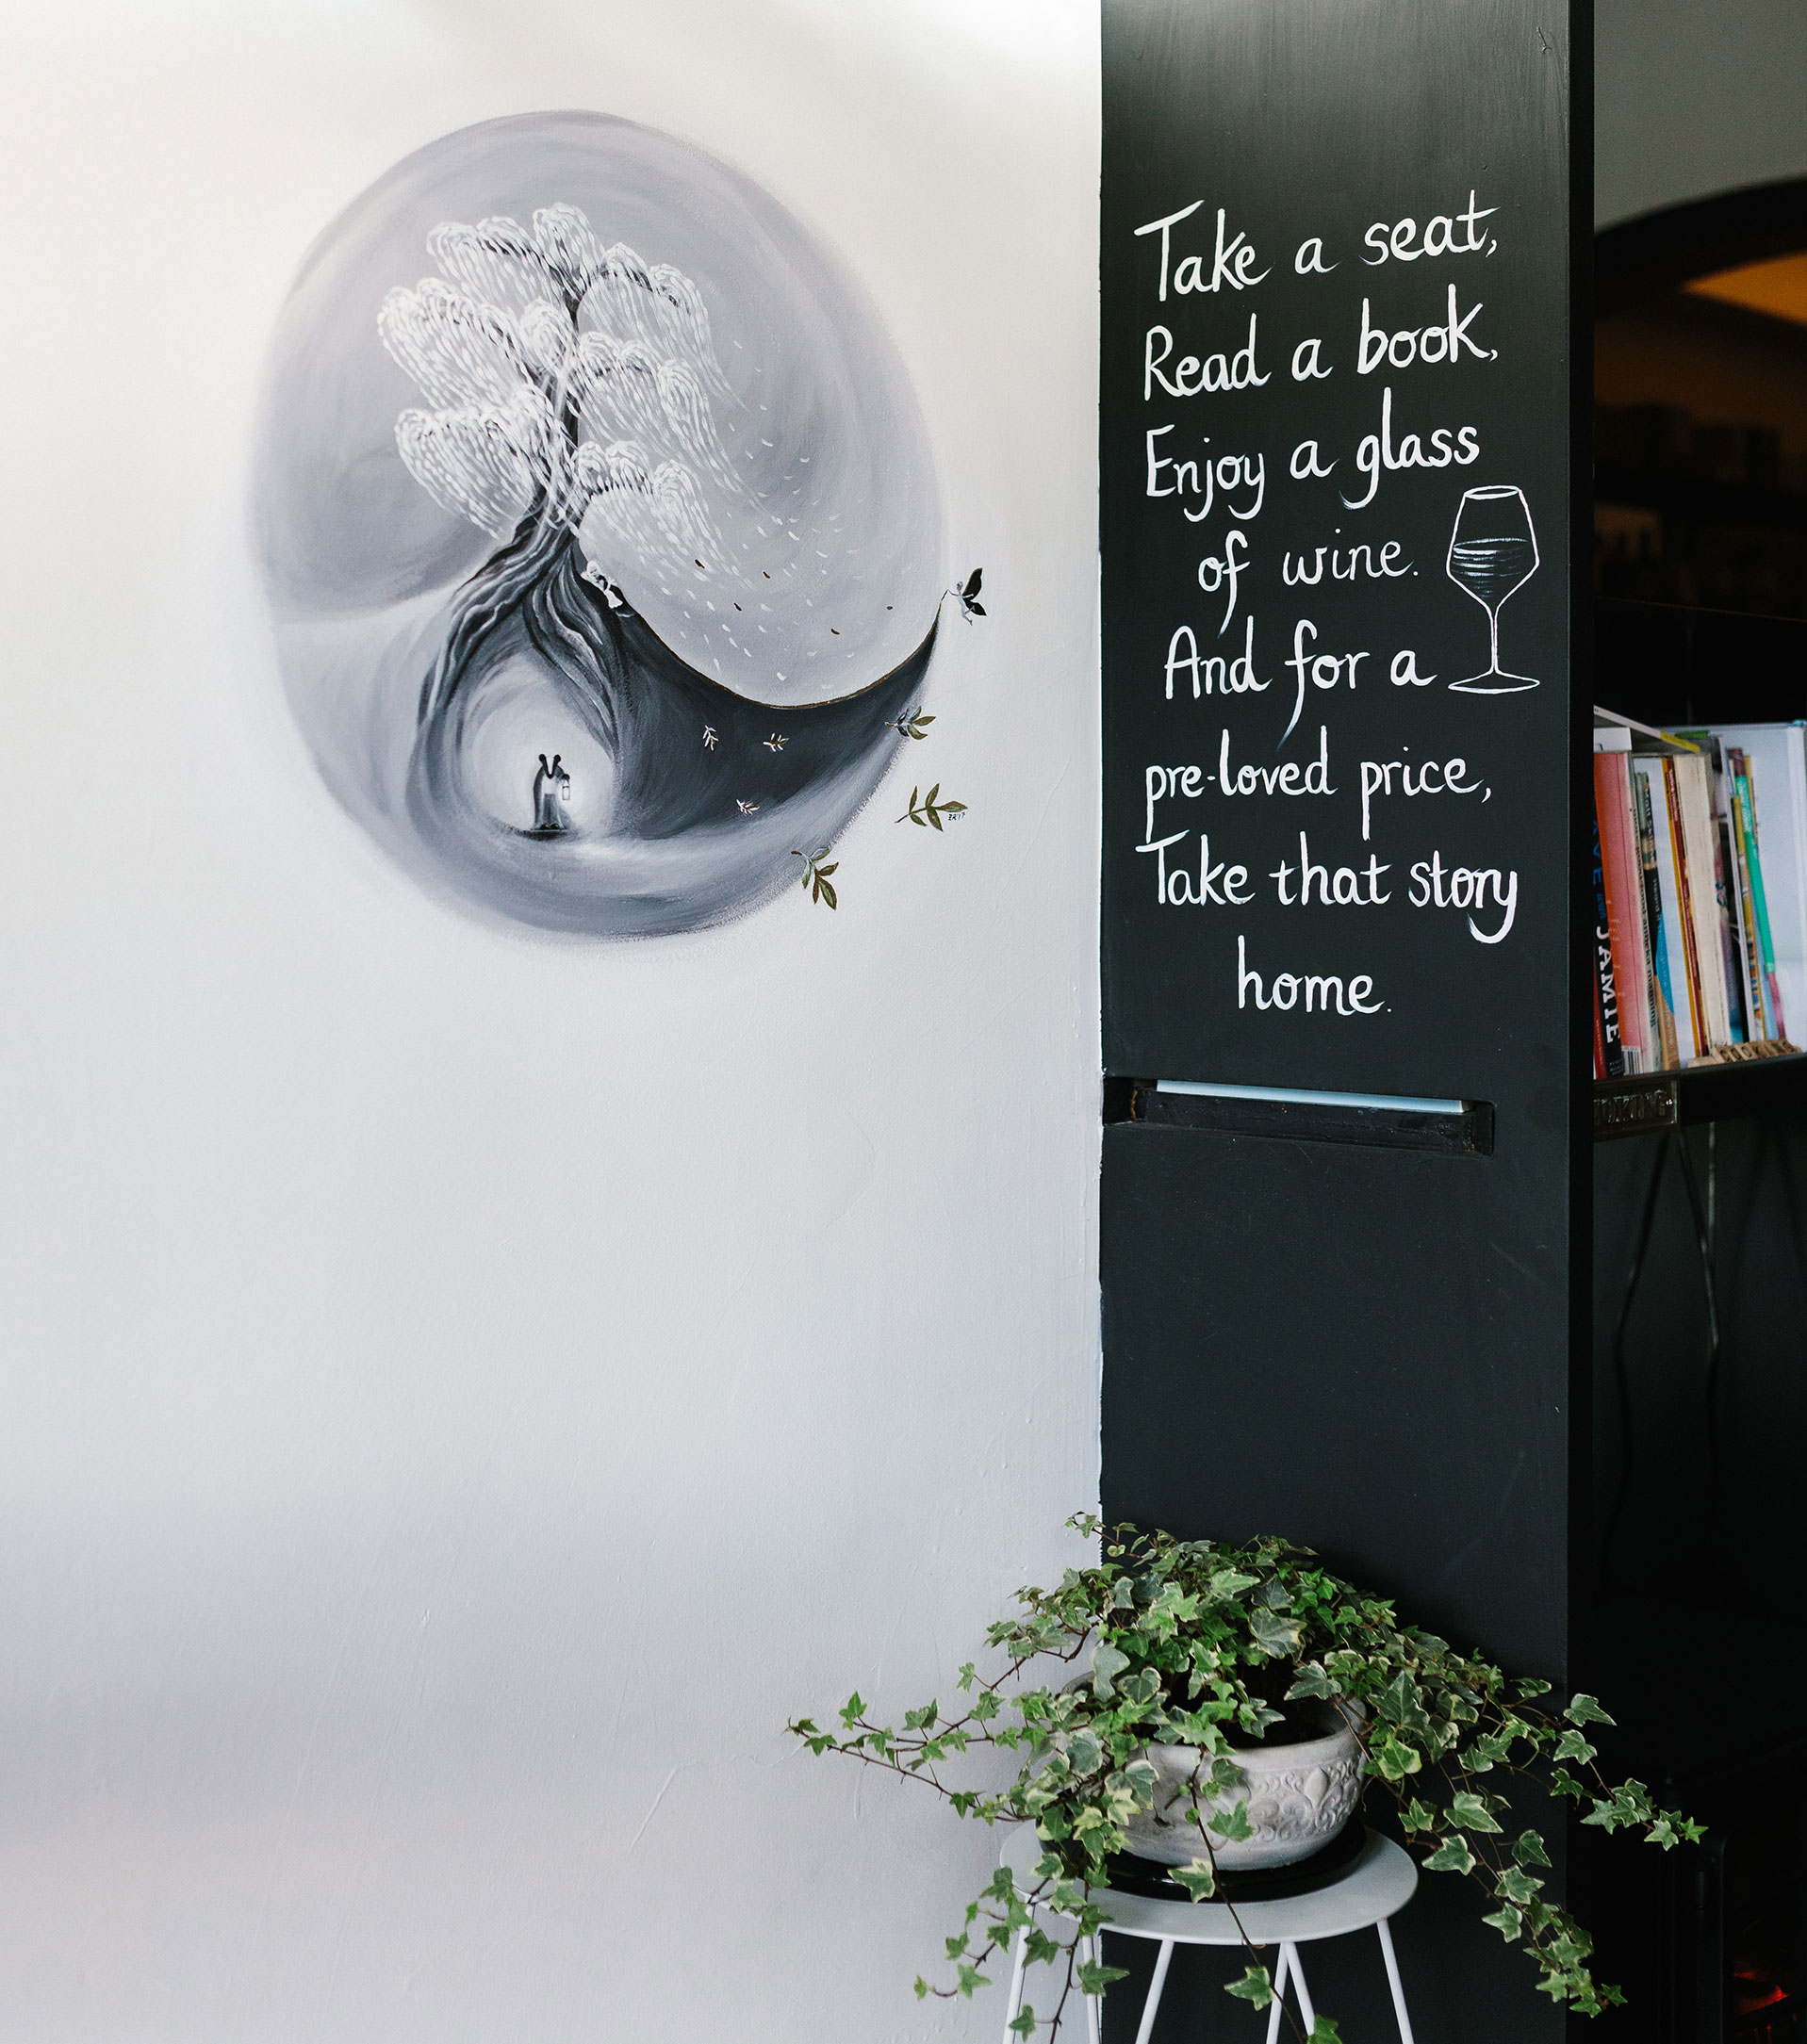 Take a seat,
Read a book,
Enjoy a glass
of wine.
And for a
pre-loved price,
Take that story
home.
JAMIE